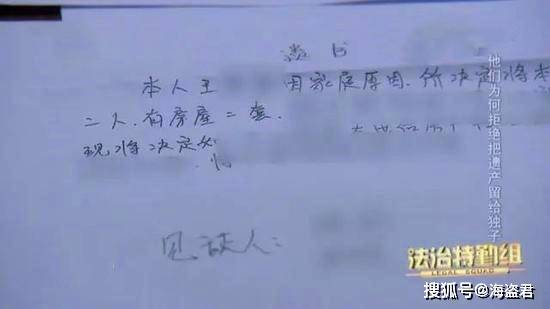 遗书
本人王 因家庭原因,经决定将
二人,有房产二套.
现将决定
见证人:
他们为何拒绝把遗产留给独子
法治特勤组
LEGAL SQUAD
搜狐号@海盗君